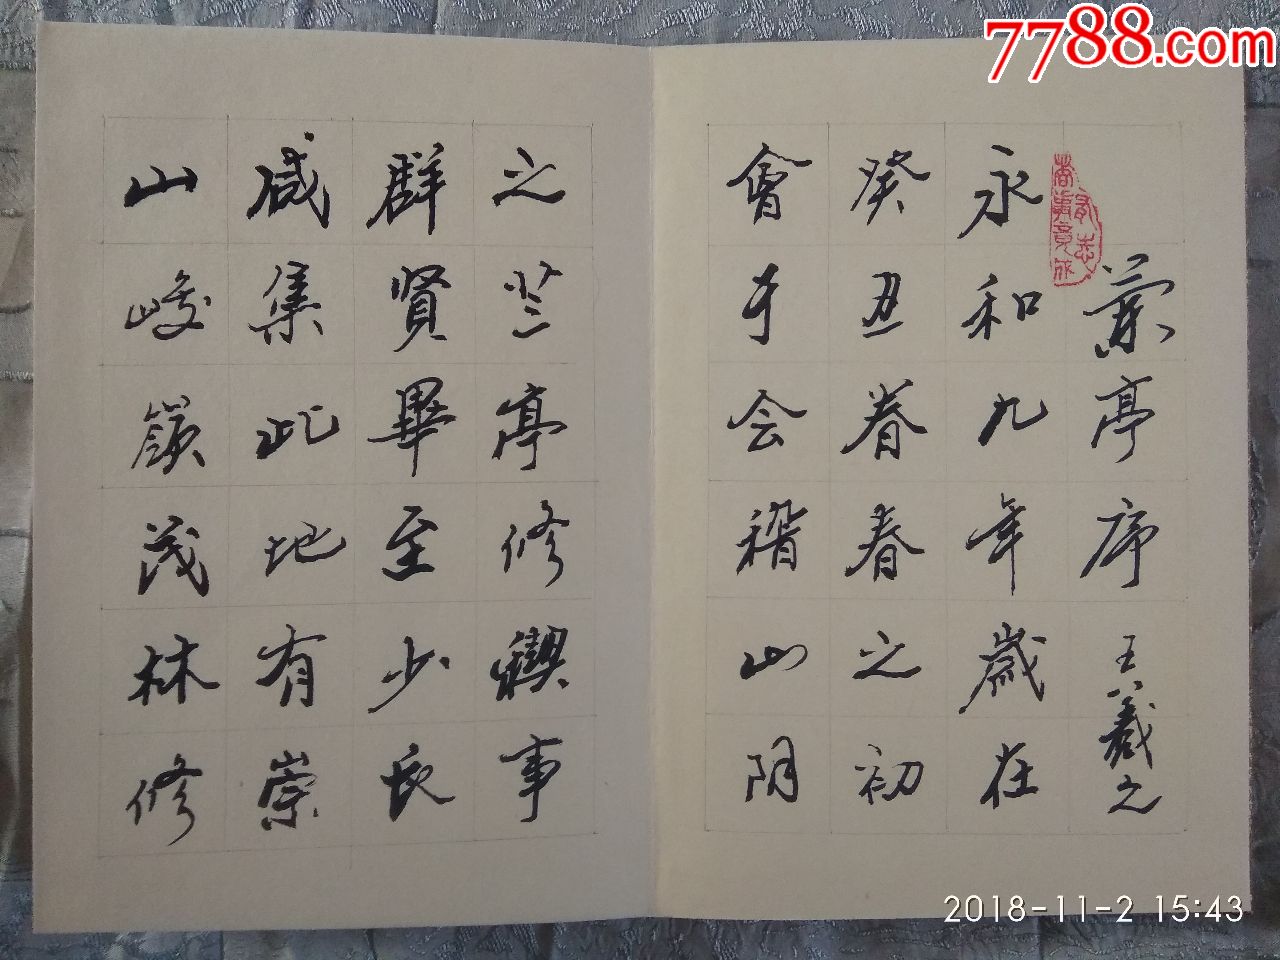 7788.com
有志者事竟成
蘭亭序 王羲之
永和九年歲在
癸丑暮春之初
會于会稽山阴
之兰亭修禊事
群賢畢至少长
咸集此地有崇
山峻嶺茂林修
2018-11-2 15:43